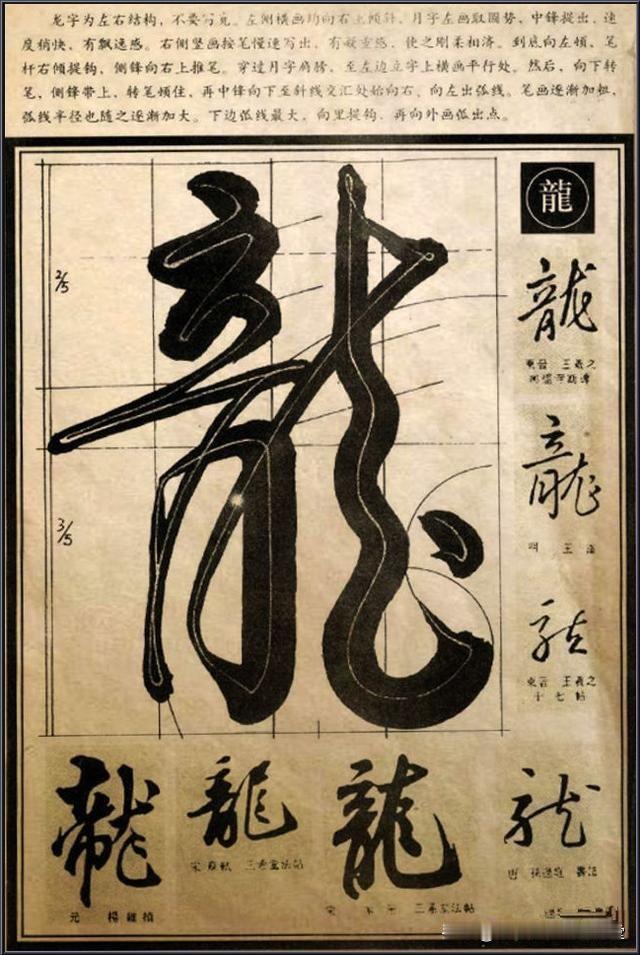 龙字为左右结构，不要写宽。左侧横画均向右上倾斜，月字左画取圆势，中锋提出，速
度稍快，有飘逸感。右侧竖画按笔慢速写出，有凝重感，使之刚柔相济。到底向左顿，笔
杆右倾提钩，侧锋向右上推笔。穿过月字肩膀，至左边立字上横画平行处。然后，向下转
笔，侧锋带上，转笔顿住，再中锋向下至斜线交汇处始向右、向左出弧线。笔画逐渐加粗，
弧线半径也随之逐渐加大。下边弧线最大，向里提钩，再向外画弧出点。
龍
龍
2/5
龍
東晋 王羲之
龍
明 王
3/5
龍
東晋 王羲之
十七帖
龍
元 楊維楨
龍
宋 三希堂法帖
龍
宋 三希堂法帖
龍
唐 孫過庭 書譜